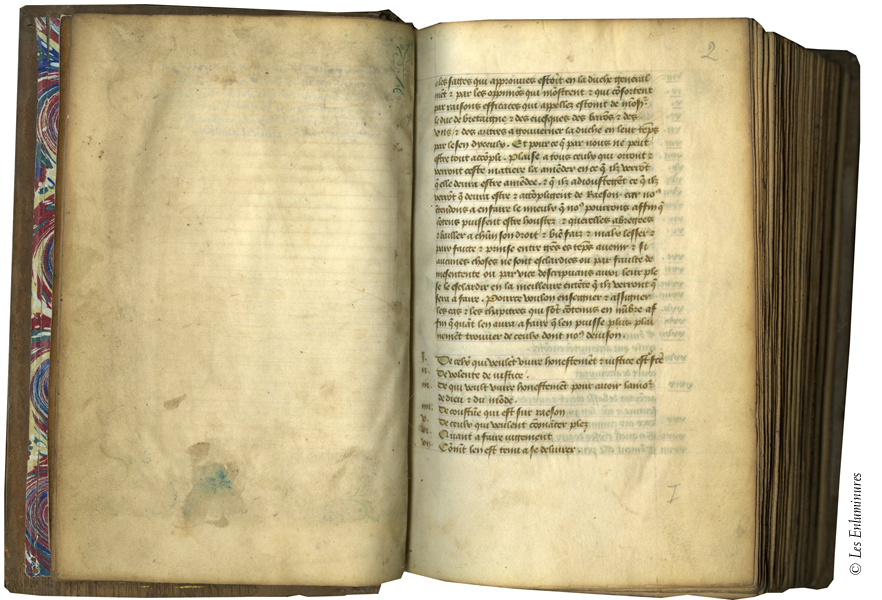 2
des sages qui approuves estoit en la duche general
mēt ⁊ par les oppinions qui mōstrent ⁊ qui cōfortent
par raisons efficaces qui appellez estoient de mōsʳ
le duc de bretaigne ⁊ des euesques des barōs ⁊ des
⁊ des autres a gouuerner la duche en leur tēps
par le sen dyceulx . Et pour ce q̄ par nous ne peut
estre tout accōpli . Plaise a tous ceulx qui orront ⁊
verront ceste matiere la amēder en ce q̄ ilz verrōt
q̄ elle deura estre amēdee . ⁊ q̄ ilz adioustegēt ce q̄ ilz
verrōt q̄ deura estre ⁊ accōpligent de Raeson car noꝰ
tendons a en faire le mieulx q̄ noꝰ pourrons affin q̄
cōtens puissent estre houstez ⁊ querelles abregees
⁊ bailler a chūn son droit ⁊ biē faiz ⁊ malx lesser ⁊
paix faicte ⁊ prinse entre gēs es tēps auenir ⁊ si
aucunes choses ne sont esclardies ou par faulte de
mesentente ou par vice descripuans aient leur ple
se le esclardir en la meilleure entēte q̄ ilz verront q̄
sera a faire . Pource voulon enseigner ⁊ assigner
les cas ⁊ les chapitres qui sōt cōtenus en nūbre af
fin q̄ quāt len aura a faire q̄ len puisse plus plai
nemēt trouuer de ceulx dont noꝰ deuison .
I. De celx̄ qui veulēt viure honestemēt ⁊ iustice est scē
ii. De volente de iustice .
iii. De qui veult viure honestemēt pour auoir lamoʳ
de dieu ⁊ du mōde .
iiii. De coustūe qui est sur raeson
v. De ceulx qui veulent cōmācer plez
vi. Quant a faire iugement
vii. Cōmēt len est tenu a se deliurer
I
© Les Enluminures